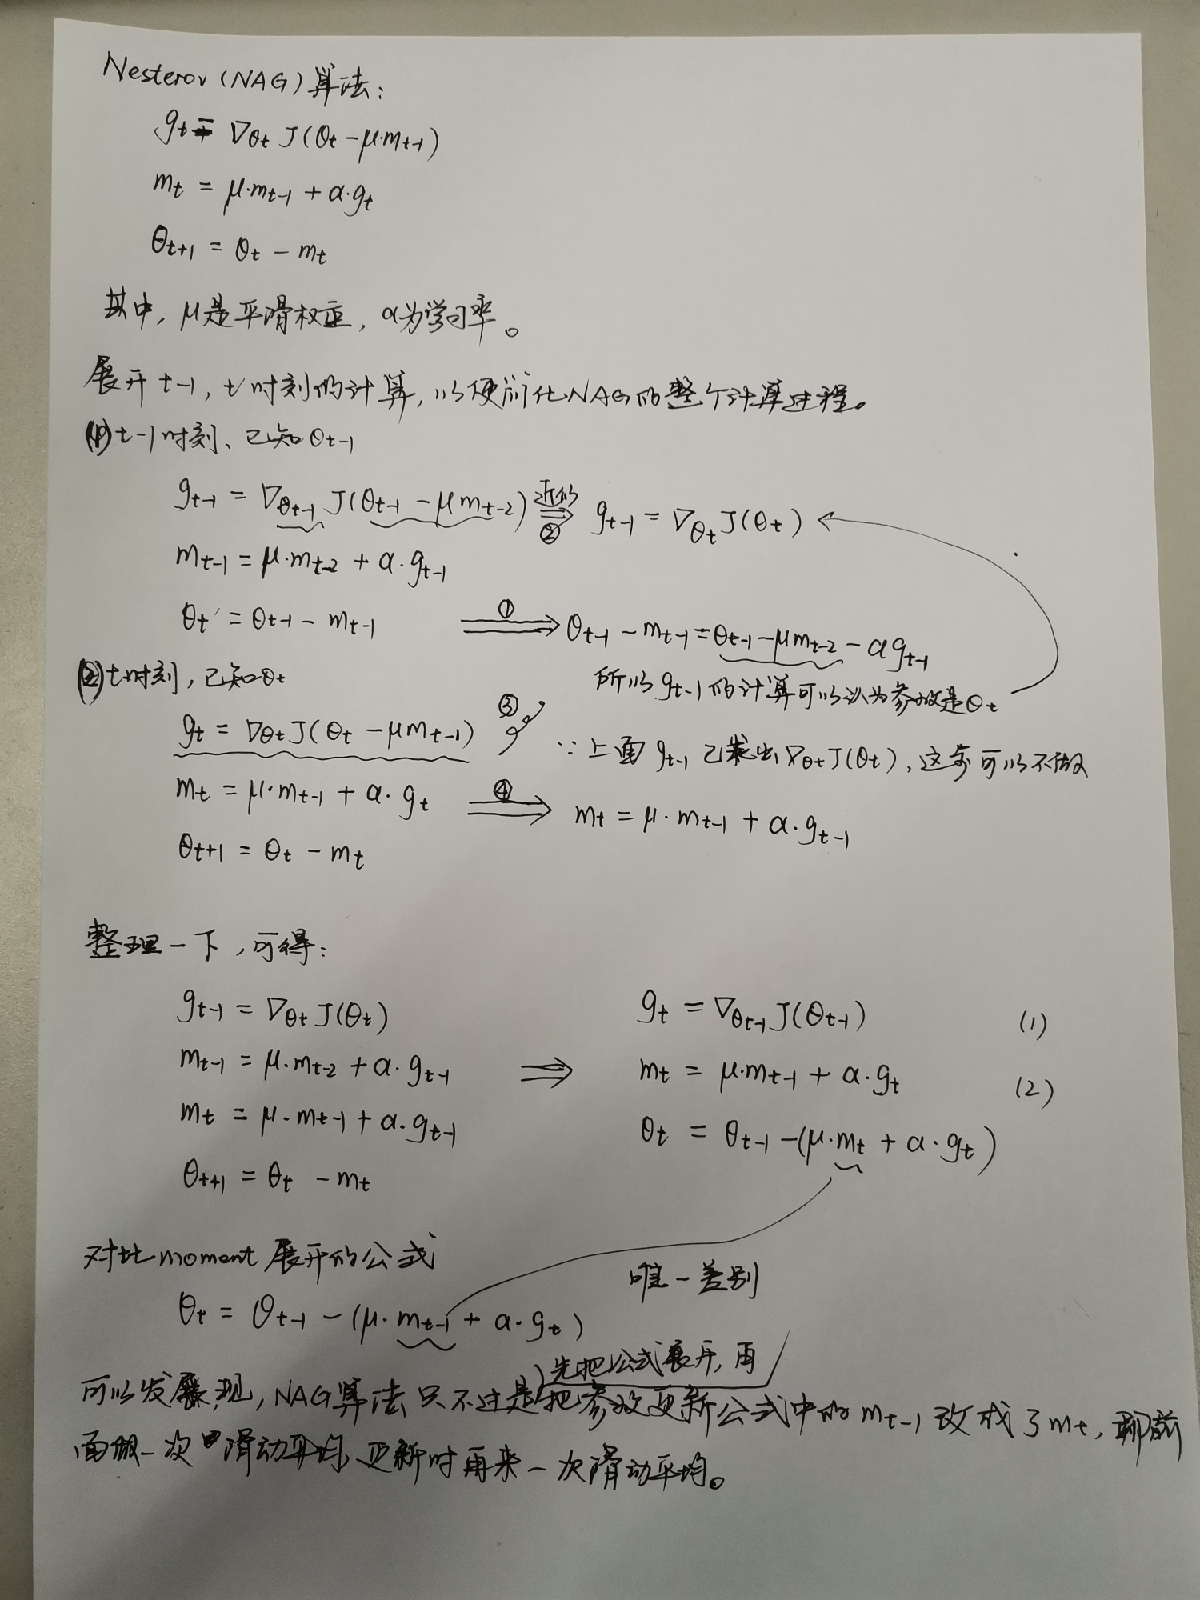 Nesterov (NAG) 算法:
gt = ∇θt J(θt - μ·mt-1)
mt = μ·mt-1 + α·gt
θt+1 = θt - mt
其中, μ是平滑权重, α为学习率。
展开 t-1, t 时刻的计算, 以便简化NAG的整个计算过程。
(1) t-1时刻、已知θt-1
gt-1 = ∇θt-1 J(θt-1 - μmt-2) 近似 ② ⇒ gt-1 = ∇θt J(θt)
mt-1 = μ·mt-2 + α·gt-1
θt = θt-1 - mt-1 ① ⇒ θt-1 - mt-1 = θt-1 - μmt-2 - αgt-1
所以 gt-1 的计算可以认为参数是θt
(2) t时刻, 已知θt
gt = ∇θt J(θt - μmt-1) ③
∵上面 gt-1 已求出 ∇θt J(θt), 这步可以不做
mt = μ·mt-1 + α·gt ④ ⇒ mt = μ·mt-1 + α·gt-1
θt+1 = θt - mt
整理一下, 可得:
gt-1 = ∇θt J(θt) gt = ∇θt-1 J(θt-1) (1)
mt-1 = μ·mt-2 + α·gt-1 ⇒ mt = μ·mt-1 + α·gt (2)
mt = μ·mt-1 + α·gt-1 θt = θt-1 - (μ·mt + α·gt)
θt+1 = θt - mt
对比moment展开的公式
唯一差别
θt = θt-1 - (μ·mt-1 + α·gt)
先把公式展开, 再
可以发现, NAG算法只不过是把参数更新公式中的mt-1改成了mt, 即前
面做一次滑动平均, 更新时再来一次滑动平均。